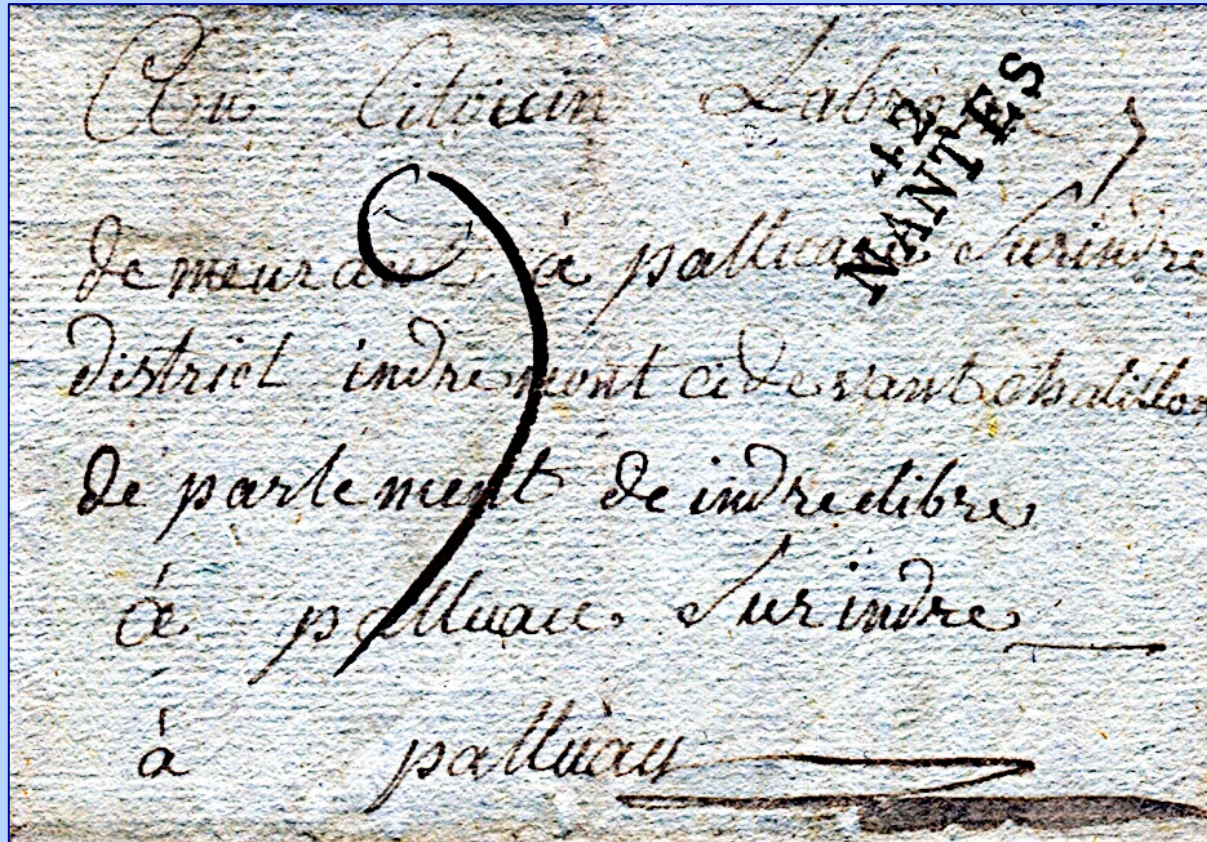 Au Citoicin
42
NANTES
demeurant à palluau Surindre
district indremont cidevant chatillon
de partement de indrelibre
à palluau Surindre
à palluau